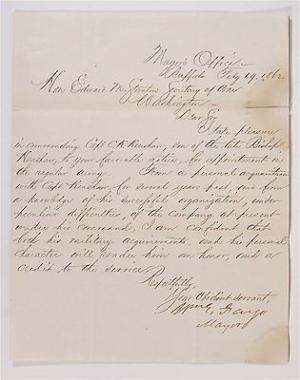 Mayor's Office
Buffalo Feby 19, 1862
Hon Edwin M. Stanton Secretary of War
Washington
Dear Sir
I take pleasure
in commending Capt C. K. Kenshaw, son of the late Bishop
Kenshaw, to your favorable notice, for appointment in
the regular army. From a personal acquaintance
with Capt Kenshaw for several years past, and from
a knowledge of his successful organization, under
peculiar difficulties, of the Company at present
under his command, I am confident that
both his military acquirements, and his personal
character will render him an honor, and a
credit to the service
Respectfully,
Your Obedient Servant,
Wm G. Fargo
Mayor